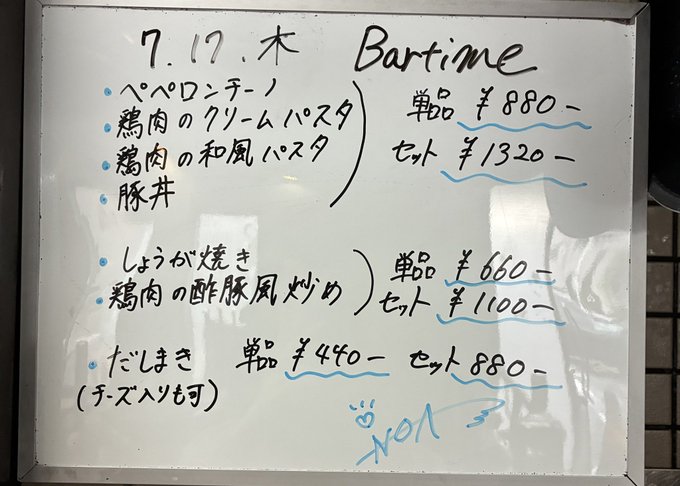 7.17.木 Bartime
・ペペロンチーノ
・鶏肉のクリームパスタ
・鶏肉の和風パスタ
・豚丼
単品 ¥880-
セット ¥1320-
・しょうが焼き
・鶏肉の酢豚風炒め
単品 ¥660-
セット ¥1100-
・だしまき 単品 ¥440- セット 880-
(チーズ入りも可)
NOA